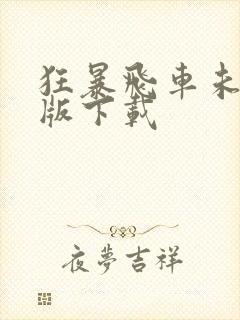 狂暴飛車未
版下載
夜夢吉祥